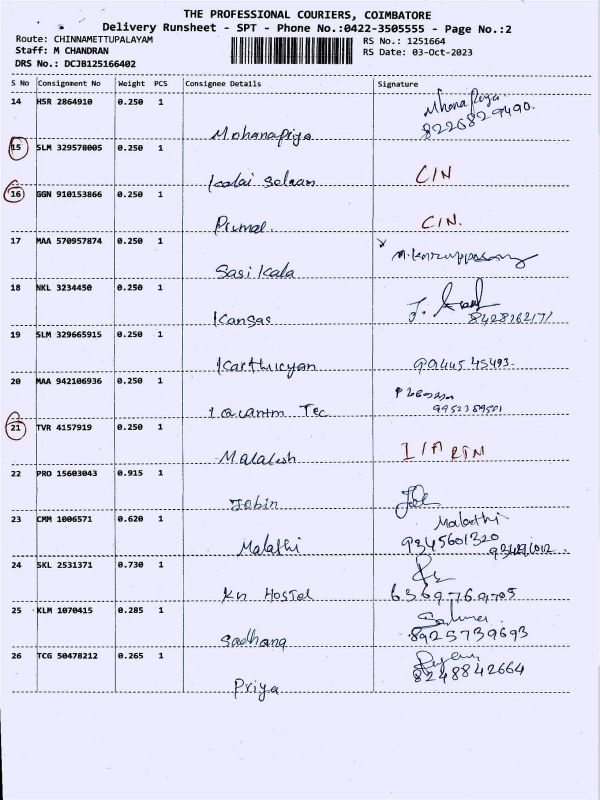 THE PROFESSIONAL COURIERS, COIMBATORE
Delivery Runsheet - SPT - Phone No.:0422-3505555 - Page No.:2
Route: CHINNAMETTUPALAYAM
Staff: M CHANDRAN
DRS No.: DCJB125166402
RS No.: 1251664
RS Date: 03-Oct-2023
S No Consignment No Weight PCS Consignee Details Signature
14 HSR 2864910 0.250 1
Mohanapriya
8226829490.
15 SLM 329578005 0.250 1
CIN
16 GGN 910153866 0.250 1
CIN.
17 MAA 570957874 0.250 1
Sasi Kala
18 NKL 3234450 0.250 1
Kansas
19 SLM 329665915 0.250 1
Karthicyan
20 MAA 942106936 0.250 1
Tec
21 TVR 4157919 0.250 1
RTN
22 PRO 15603043 0.915 1
Jobin
23 CMM 1006571 0.620 1
Malathi
Malathi 9345601320
24 SKL 2531371 0.730 1
KN Hostel
25 KLM 1070415 0.285 1
Sadhana 8925739693
26 TCG 50478212 0.265 1
Priya 8248842664